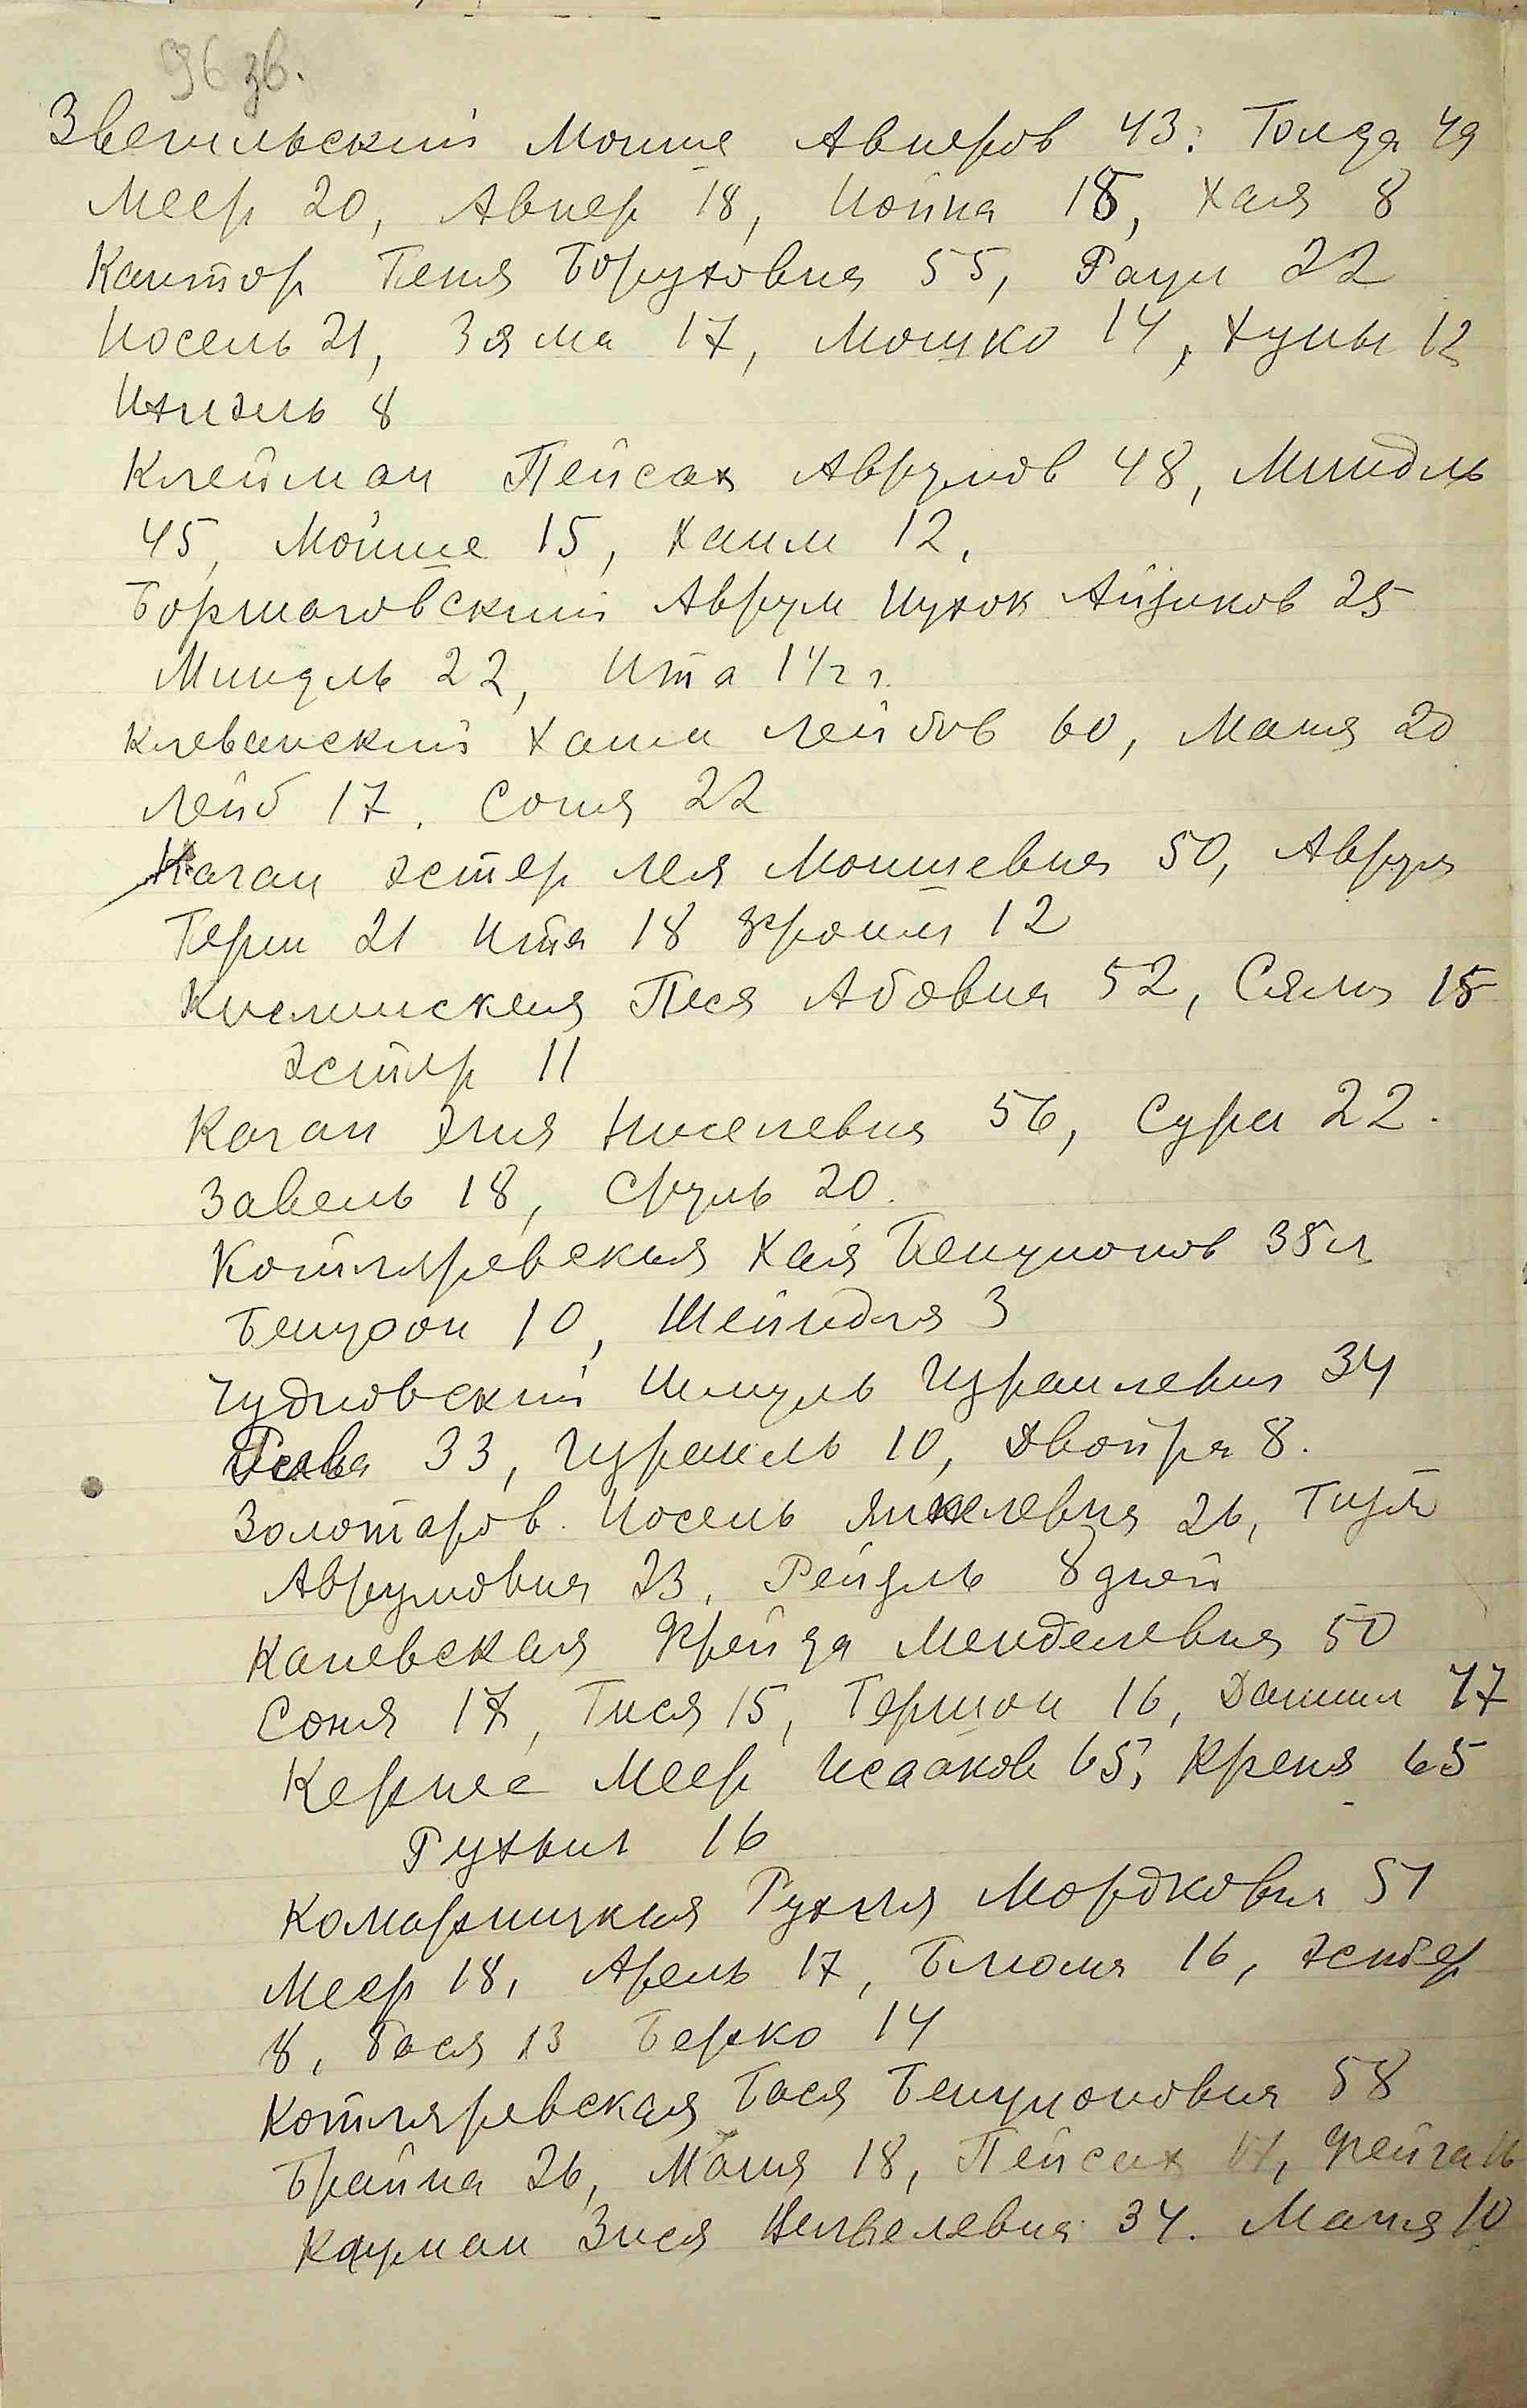 96 зв.
Звегильский Мойше Авнеров 43. Голда 49
Меер 20, Авнер 18, Нойна 15, Хая 8
Кантор Геня Боруховна 55, Раци 22
Иосель 21, Зяма 17, Мошко 14, Хуны 12
Ихиэль 8
Клейман Пейсах Аврумов 48, Миндль
45, Мойше 15, Хаим 12.
Борщаговский Аврум Ицхок Айзиков 25
Миндль 22, Ита 1 1/2 г.
Клеванский Хаим Лейбов 60, Маня 20
Лейб 17. Соня 22
Каган Эстер Лея Мойшевна 50, Аврум
Герш 21 Ита 18 Фроим 12
Песя Абовна 52, Сяма 15
Эстер 11
Каган Эня Иоселевна 56, Сура 22.
Завель 18, Сруль 20.
Котляревская Хая Бенционов 35 л
Бенцион 10, Шейндля 3
Чудновский Шмуль Израилевич 34
33, Израиль 10, Двойра 8.
Золотаров Иосель Янкелевич 26, Гитя
Аврумовна 23. Рейзль 8 дней
Каневская Фрейда Менделевна 50
Соня 17, Тися 15, Гершон 16, Даниил 77
Кернес Меер Исааков 65, Креня 65
Рухыл 16
Комарницкая Рухля Мордковна 51
Меер 18, Арель 17, Блюма 16, Эстер
8, Бася 13 Берко 14
Котляревская Бася Бенционовна 58
Брайна 26, Маня 18, Пейсах Фейга 16
Кауман Зися 34. Маня 10